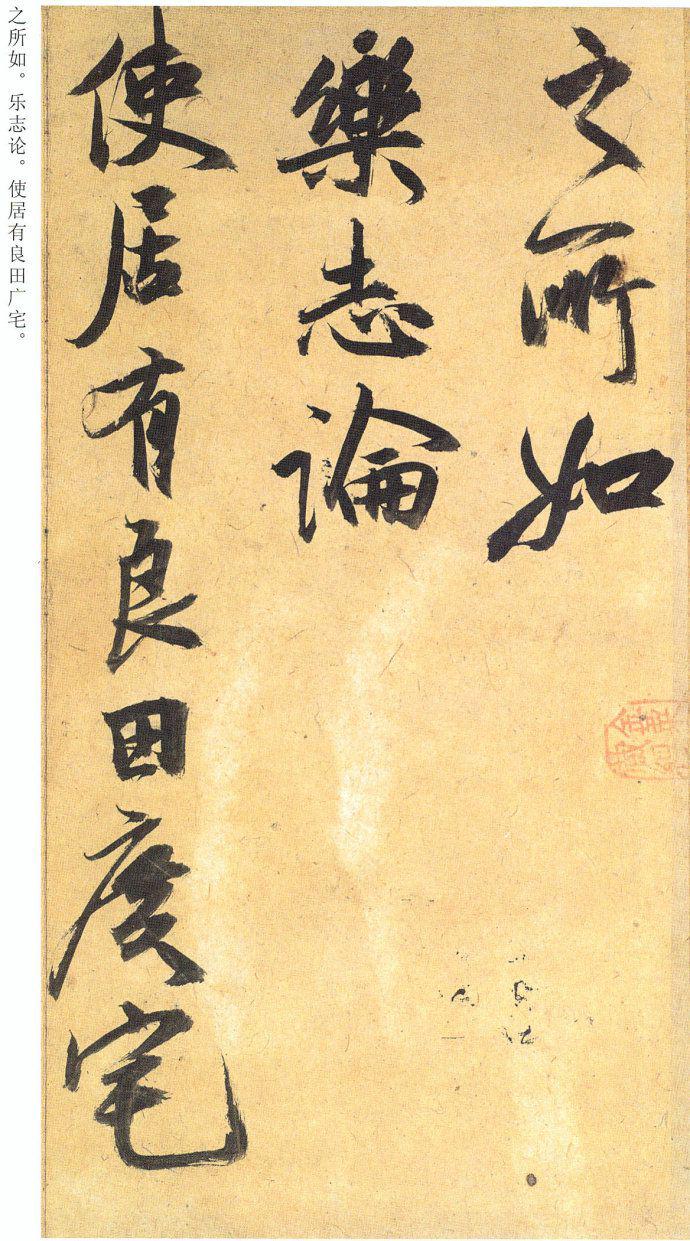 之所如
樂志論
使居有良田廣宅
之所如。乐志论。使居有良田广宅。